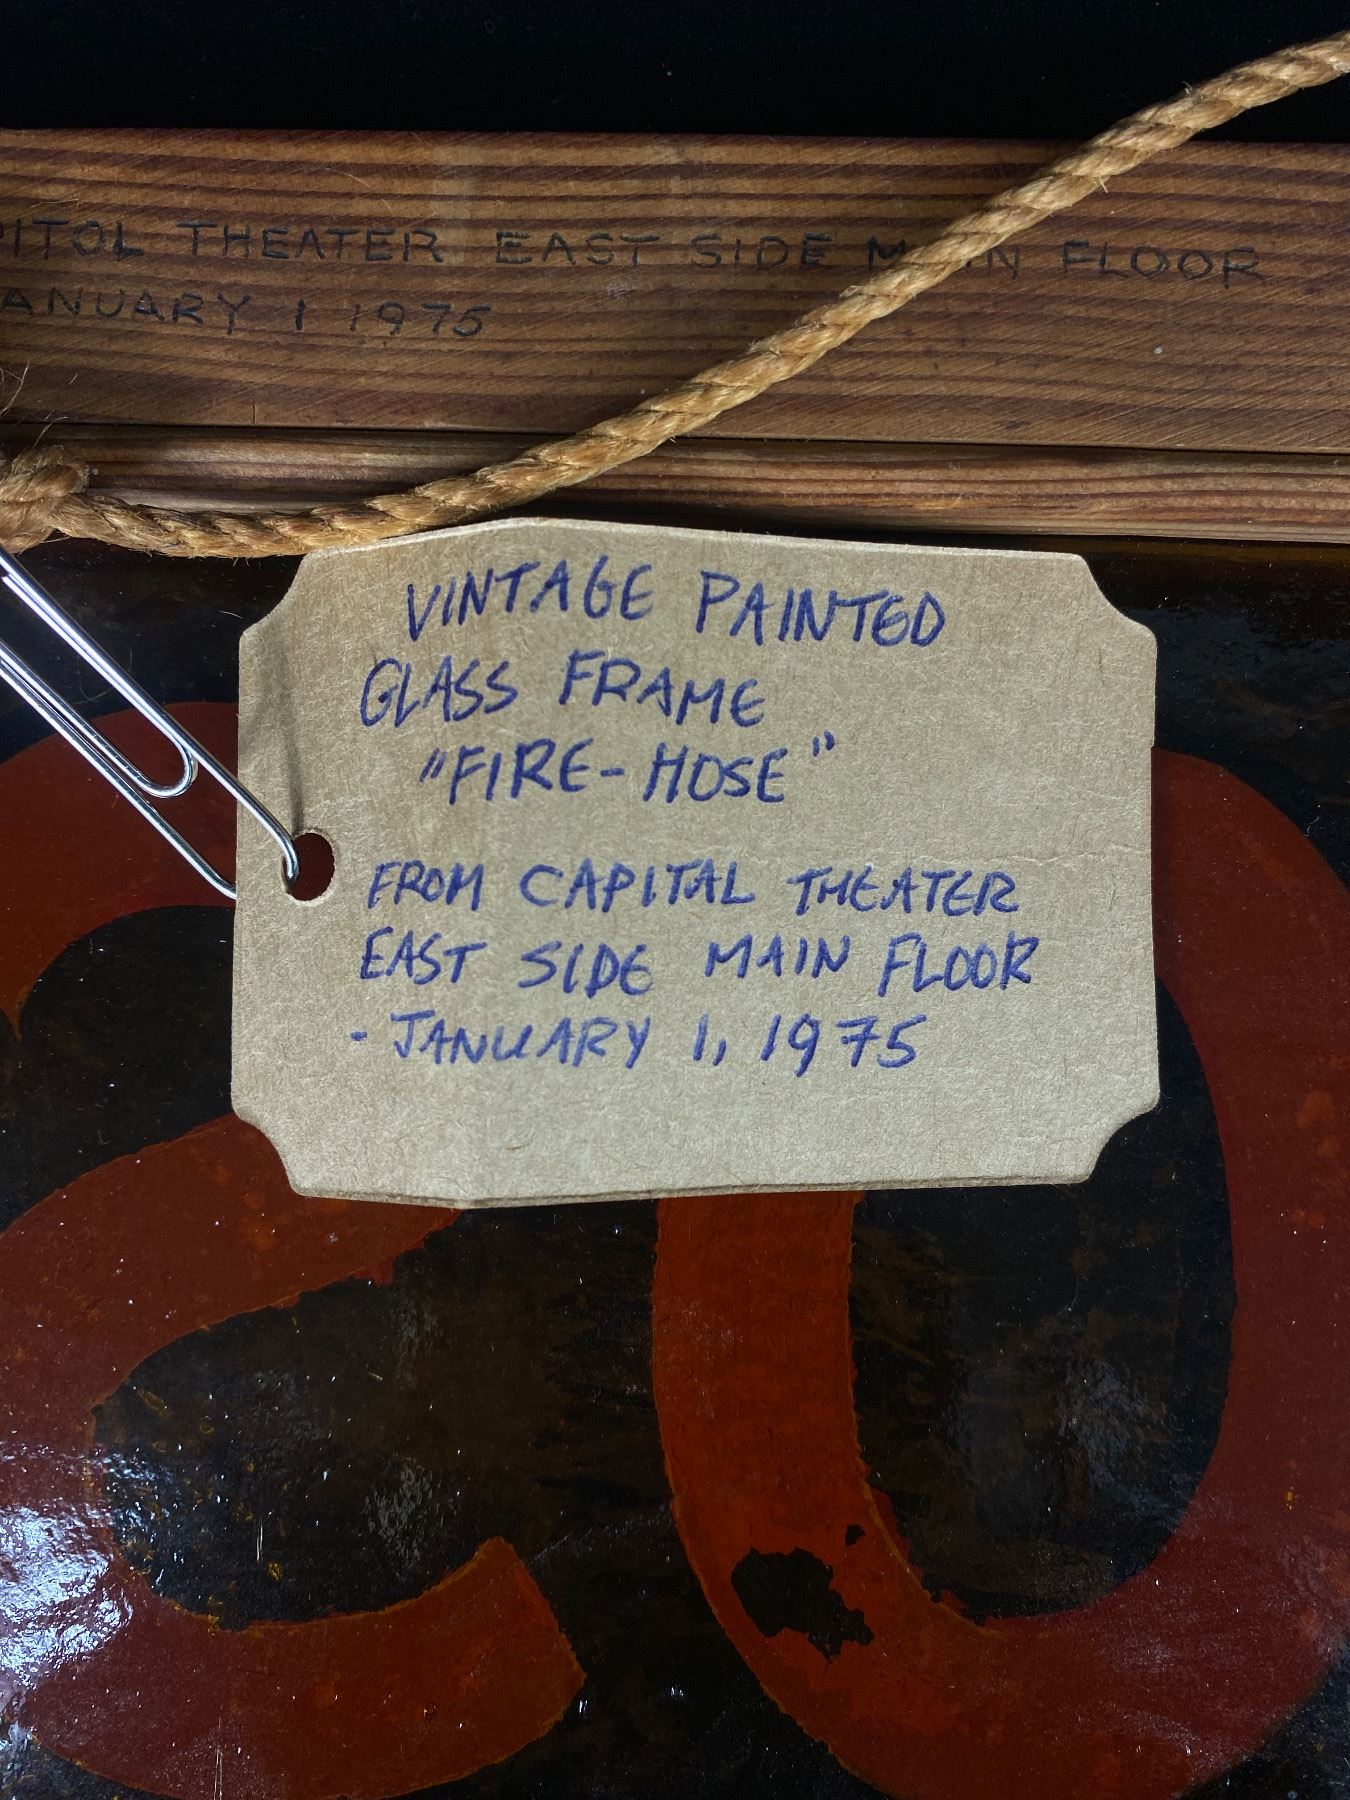 PITOL THEATER EAST SIDE MAIN FLOOR
ANUARY 1 1975
VINTAGE PAINTED
GLASS FRAME
"FIRE-HOSE"
FROM CAPITAL THEATER
EAST SIDE MAIN FLOOR
- JANUARY 1, 1975